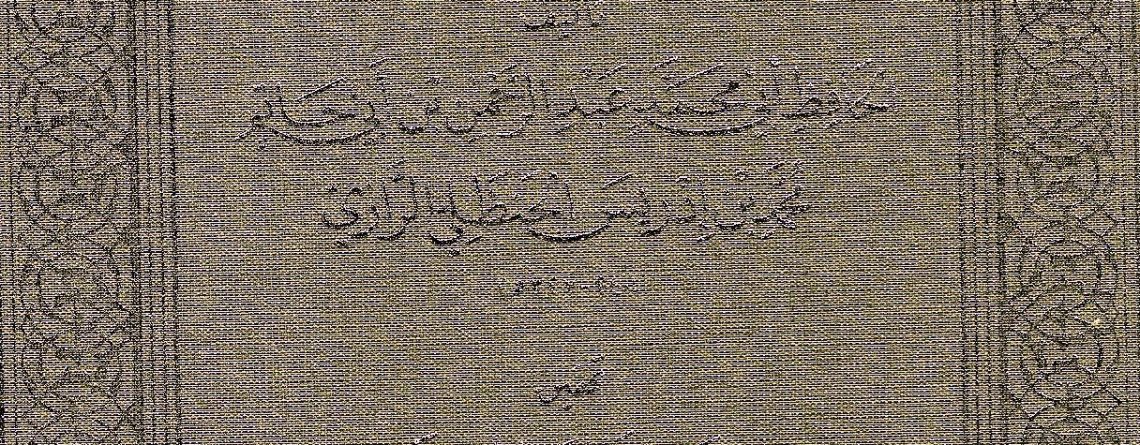 تأليف
الحافظ أبي محمد عبد الرحمن بن أبي حاتم
محمد بن إدريس الحنظلي الرازي
تحقيق